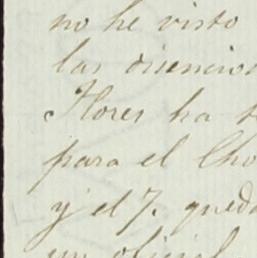 no he visto
las disencio
Flores ha
para el Cho
y el 7. queda
un oficial